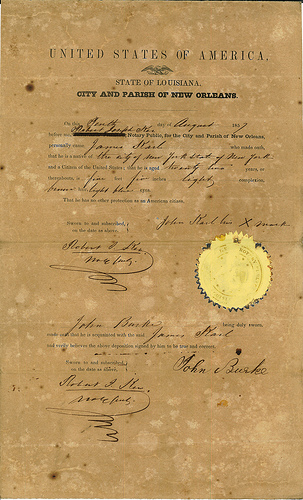 UNITED STATES OF AMERICA,
STATE OF LOUISIANA,
CITY AND PARISH OF NEW ORLEANS.
On this Tenth day of August 185
before me, Notary Public, for the City and Parish of New Orleans,
personally came James who made oath,
that he is a native of the city of New York State of New York
and a Citizen of the United States; that he is aged Twenty years, or
thereabouts; is five feet inches, light complexion,
hair, light blue eyes.
That he has no other protection as an American citizen.
Sworn to and subscribed,
on the date as above,
John his X mark
Robert J. Ker
Not. Pub.
John Burke being duly sworn,
made oath that he is acquainted with the said James
and verily believes the above deposition signed by him to be true and correct.
Sworn to and subscribed
on the date as above;
John Burke
Robert J. Ker
Not. Pub.